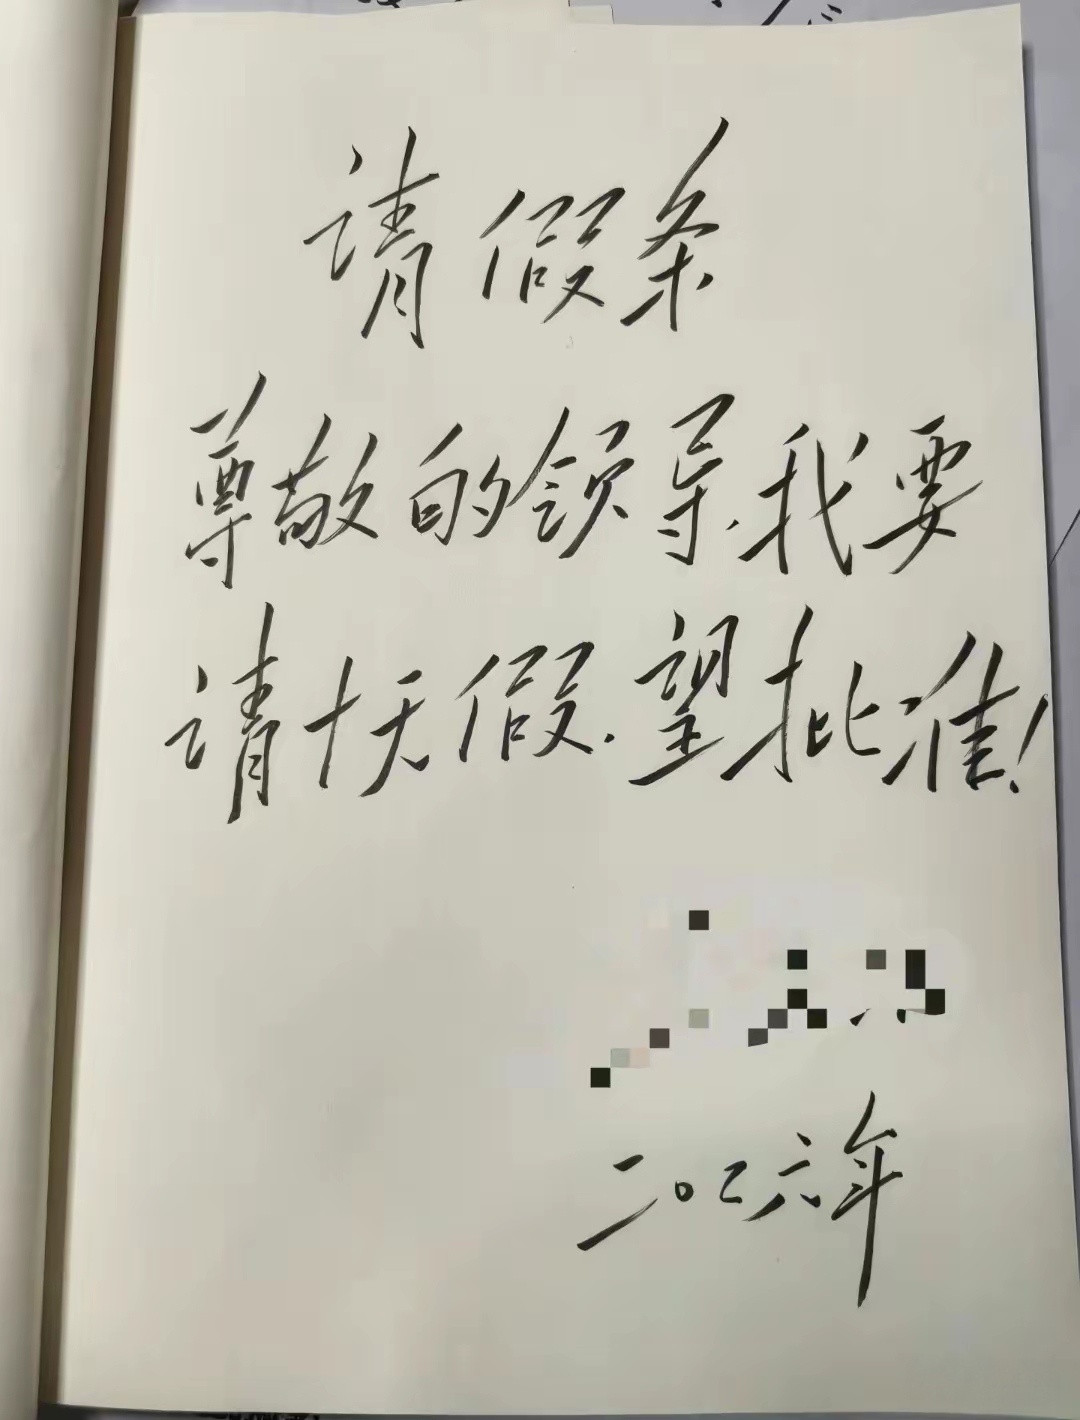 请假条
尊敬的领导,我要
请十天假.望批准!
二〇二六年